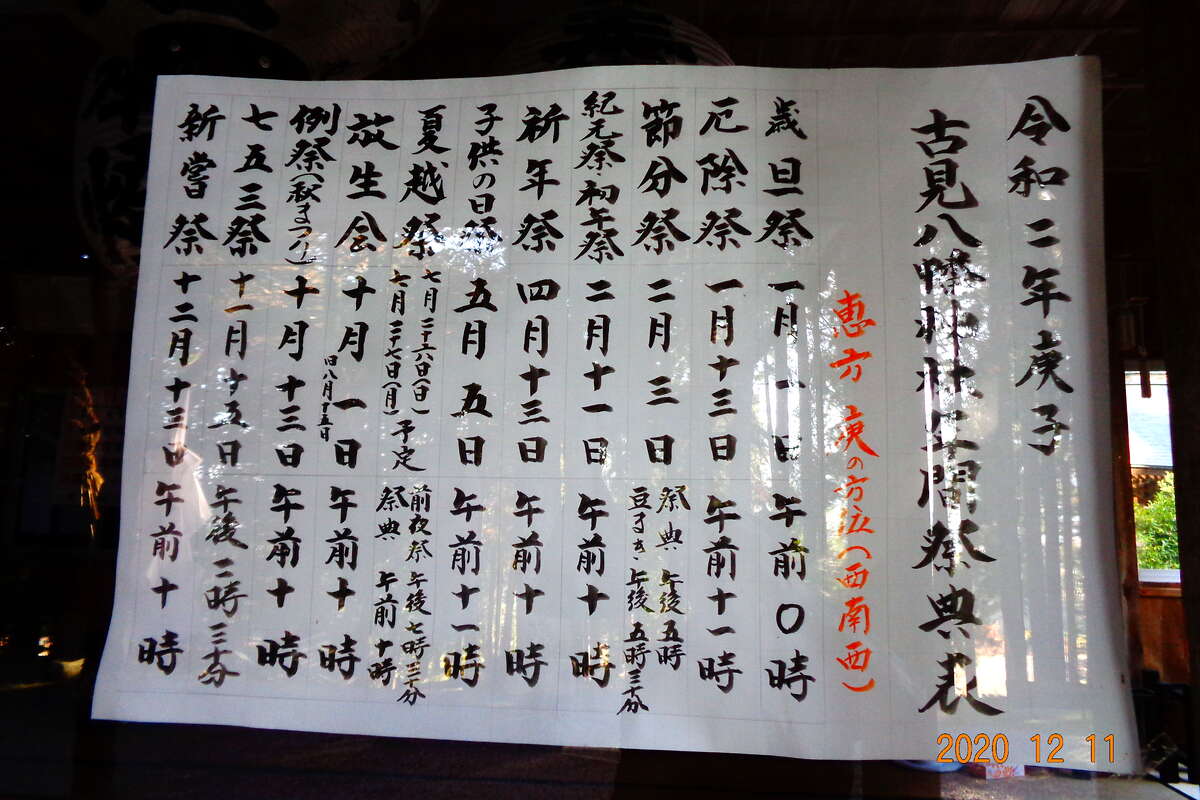 令和二年庚子
古見八幡神社年間祭典表
恵方 庚の方位(西南西)
歳旦祭 一月一日 午前〇時
厄除祭 一月十三日 午前十一時
節分祭 二月三日 祭典 午後五時
豆まき 午後五時三十分
紀元祭・初午祭 二月十一日 午前十時
祈年祭 四月十三日 午前十時
子供の日祭 五月五日 午前十一時
夏越祭 七月二十六日(日) 前夜祭 午後七時三十分
七月二十七日(月)予定 祭典 午前十時
放生会 十月一日 午前十時
旧八月十五日
例祭(秋まつり) 十月十三日 午前十時
七五三祭 十一月十五日 午後二時三十分
新嘗祭 十二月十三日 午前十時
2020 12 11